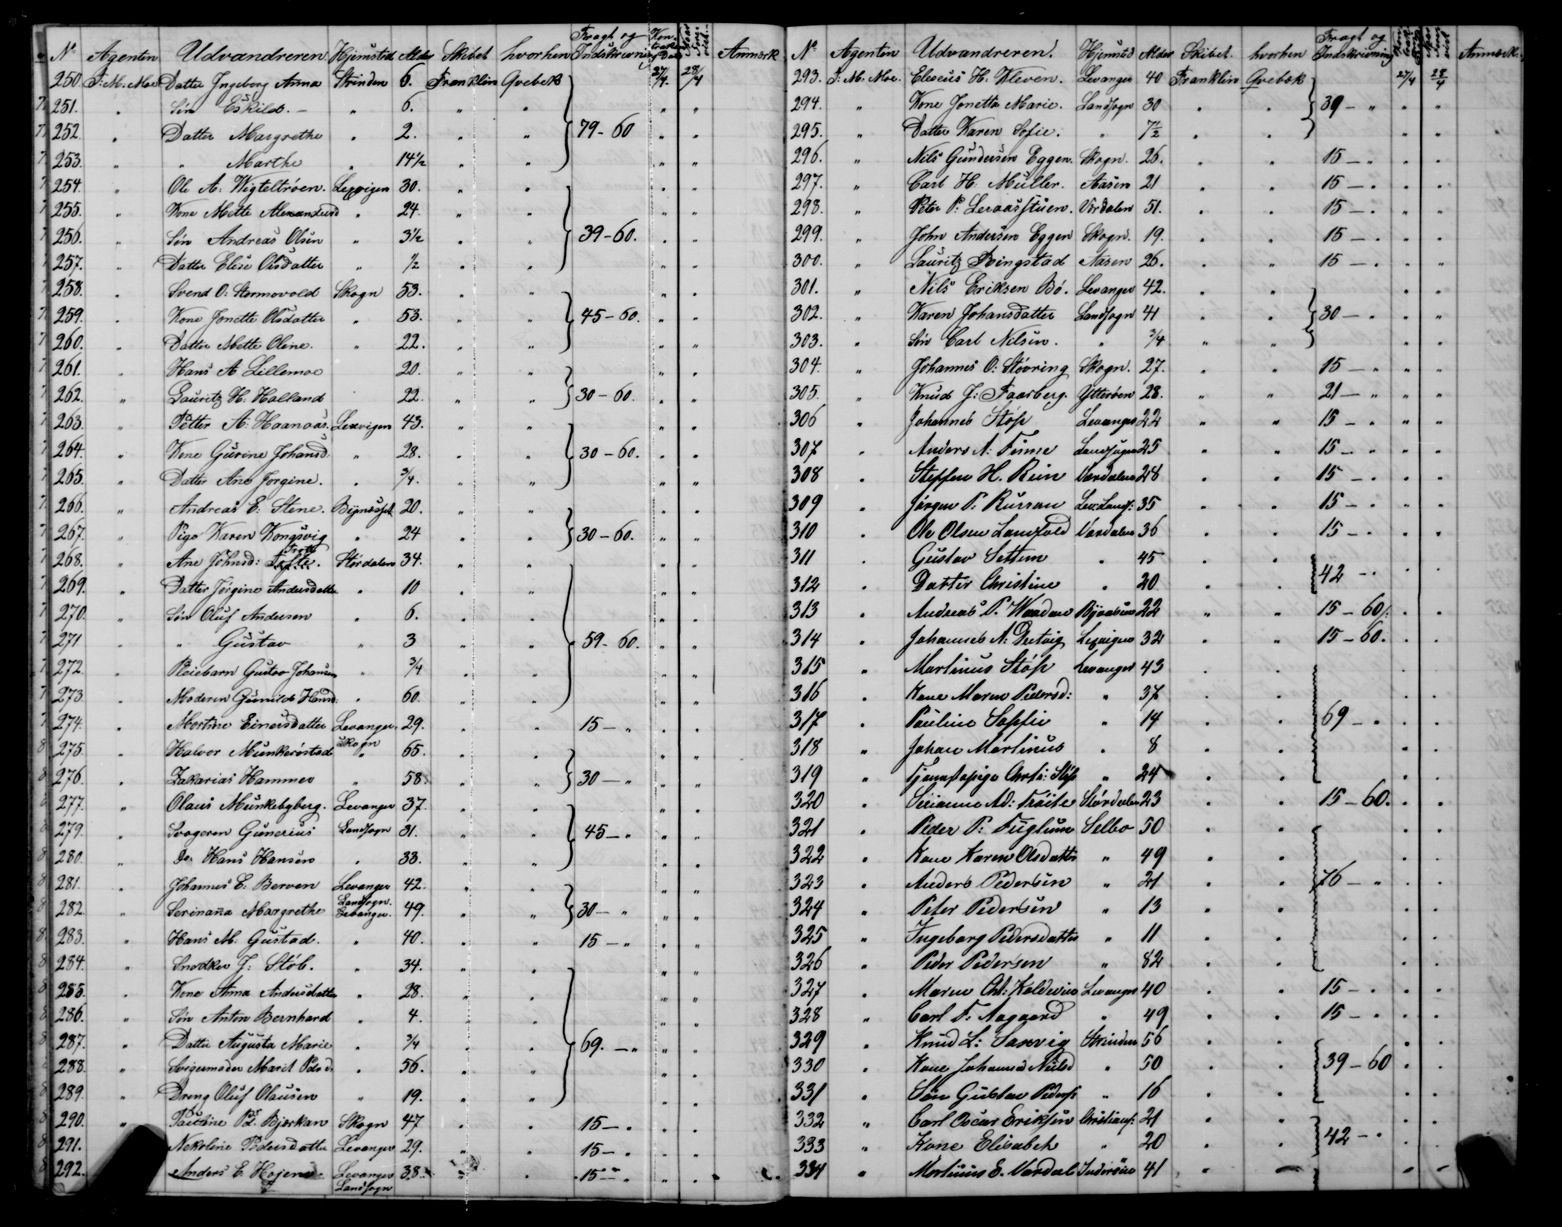 No Agenten Udvandreren Hjemsted Alder Skibet hvorhen Fragt og Indskrivning Anmærk
250. F. M. Moe Datter Ingeborg Anna Strinden 6. Franklin Qvebek 27/4. 28/4
251. " Søn Eskild. — " 6. " "
252. " Datter Margrethe " 2. " " 79-60
253. " " Marthe " 14½ " "
254. " Ole A: Wigteltrøen. Lexvigen 30. " "
255. " Kone Mette Alexandersd " 24. " "
256. " Søn Andreas Olsen " 3½ " " 39-60.
257. " Datter Elise Olsdatter " ½ " "
258. " Svend O: Stormovold Skogn 53. " "
259. " Kone Jonette Olsdatter " 53. " " 45-60.
260. " Datter Mette Olene. " 22. " "
261. " Hans A Lillemoe 20. " "
262. " Lauritz H. Halland 22. " " 30-60.
263. " Petter A: Haanaas. Lexvigen 43. " "
264. " Kone Gurine Johansd. " 28. " " 30-60.
265. " Datter Ane Jorgine. " ¾. " "
266. " Andreas E: Stene. 20. " "
267. " Pige Karen Kongsvig " 24 " " 30-60.
268. " Ane Johnsd: Stördalen 34. " "
269. " Datter Jörgine Andersdatter " 10 " "
270. " Søn Oluf Andersen " 6. " "
271 " " Gustav " 3 " " 59-60.
272. " Pleiebarn Gustav Johansen " ¾ " "
273. " Moderen Gunild " 60. " "
274. " Martine Einersdatter Levanger 29. " " 15— "
275. " Halvor Munkerøstad Skogn 65. " "
276. " Zakarias Hammer " 58. " " 30— "
277. " Olaus Munkebyberg. Levanger 37. " "
279. " Svogeren Gunerius Landsogn 31. " " 45— "
280. " Do Hans Hansen " 33. " "
281. " Johannes E. Berven Levanger 42. " "
282. " Serinana Margrethe Landsogn. Levanger. 49. " " 30— "
283. " Hans M. Gustad. " 40. " " 15— "
284. " J: Støb. " 34. " "
285. " Kone Anna Andersdatter " 28. " "
286. " Søn Anton Bernhard " 4. " "
287. " Datter Augusta Marie " ¾ " " 69.— "
288. " Svigermoder Marit " 56. " "
289. " Dreng Oluf Olausen " 19. " "
290. " Pauline Bjerkan Skogn 47 " " 15— "
291. " Nekoline Pedersdatter Levanger 29. " " 15— "
292. " Anders E. Levanger Landsogn 38. " " 15— "
No Agenten Udvandreren. Hjemsted Alder Skibet hvorhen Fragt og Indskrivning Anmærk.
293. F. M. Moe. Eleseus H. Kleven. Levanger 40 Franklin Qvebek 27/4 28/4
294. " Kone Jonetta Marie. Landsogn 30 " " 39— "
295. " Datter Karen Sofie. " " "
296. " Nils Gundersen Eggen. Skogn. 26. " " 15— "
297. " Carl H: Müller. Aasen 21 " " 15— "
298. " Peter P: Leraasstuen. Verdalen 51. " " 15— "
299. " John Andersen Eggen Skogn. 19. " " 15— "
300. " Lauritz Ringstad Aasen 26. " " 15— "
301. " Nils Eriksen Bö. Levanger 42. " "
302. " Karen Johansdatter Landsogn 41 " " 30— "
303. " Søn Carl Nilsen. " ¾ " "
304. " Johannes O: Stövring Skogn. 27. " " 15— "
305. " Knud J: Faarberg. Ytterøen 28. " " 21— "
306 " Johannes Støp Levanger 22 " " 15— "
307 " Anders A: Finne Landsogn 25 " " 15— "
308 " Steffen H. Rein Værdalen 28 " " 15— "
309 " Jørgen P. Lev: Lands: 35 " " 15— "
310 " Ole Olsen Værdalen 36 " " 15— "
311 " Gustav " 45 " "
312 " Datter Christine " 20 " " 42— "
313 " Andreas P. 22 " " 15-60.
314 " Johannes N. Lexvigen 32 " " 15-60.
315 " Martinus Støp Levanger 43 " "
316 " Kone Maren Pedersd: " 37 " "
317 " Pauline Sophie " 14 " " 69— "
318 " Johan Martinus " 8 " "
319 " " 24 " "
320 " Ad: Stördalen 23 " " 15-60.
321 " Peder P: Fuglem Selbo 50 " "
322 " Kone Karen Olsdatter " 49 " "
323 " Anders Pedersen " 21 " " 76— "
324 " Peter Pedersen " 13 " "
325 " Ingeborg Pedersdatter " 11 " "
326 " Peder Pedersen " 82 " "
327 " Maren Levanger 40 " " 15— "
328 " Carl F. Aagaard " 49 " " 15— "
329 " Knud L: Strinden 56 " "
330 " Kone Johanna " 50 " " 39-60
331 " Søn Gustav " 16 " "
332 " Carl Oscar Eriksen 21 " "
333 " Kone Elisabeth " 20 " " 42— "
334 " Martinus E. Inderøen 41 " "